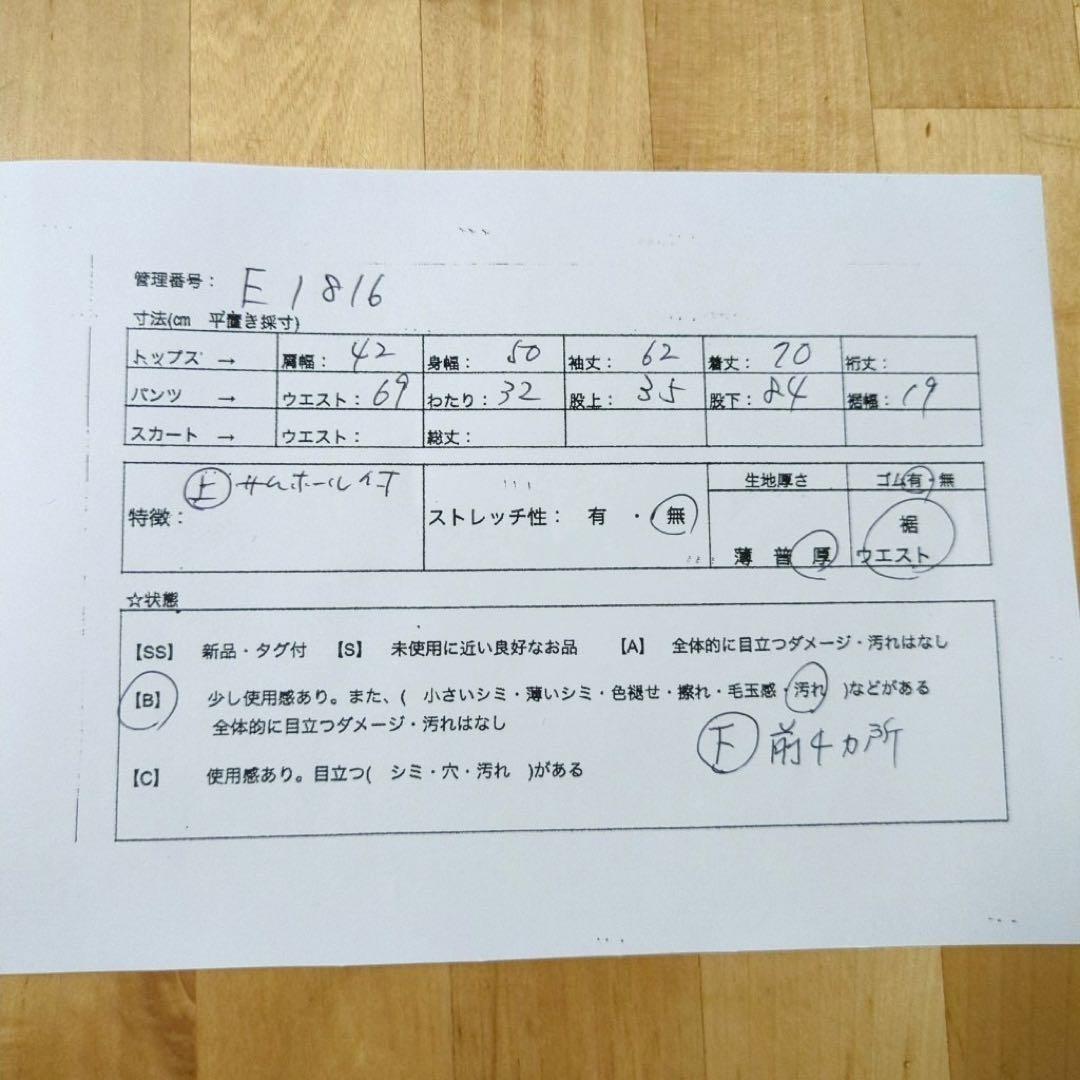 管理番号： E1816
寸法(cm 平置き採寸)
トップス → 肩幅： 42 身幅： 50 袖丈： 62 着丈： 70 裄丈：
パンツ → ウエスト： 69 わたり： 32 股上： 35 股下： 84 裾幅： 19
スカート → ウエスト： 総丈：
特徴： 上 サムホール付 ストレッチ性： 有 ・ 無 生地厚さ ゴム有・無
裾
薄 普 厚 ウエスト
☆状態
【SS】 新品・タグ付 【S】 未使用に近い良好なお品 【A】 全体的に目立つダメージ・汚れはなし
【B】 少し使用感あり。また、( 小さいシミ・薄いシミ・色褪せ・擦れ・毛玉感・汚れ )などがある
全体的に目立つダメージ・汚れはなし
下 前4カ所
【C】 使用感あり。目立つ( シミ・穴・汚れ )がある